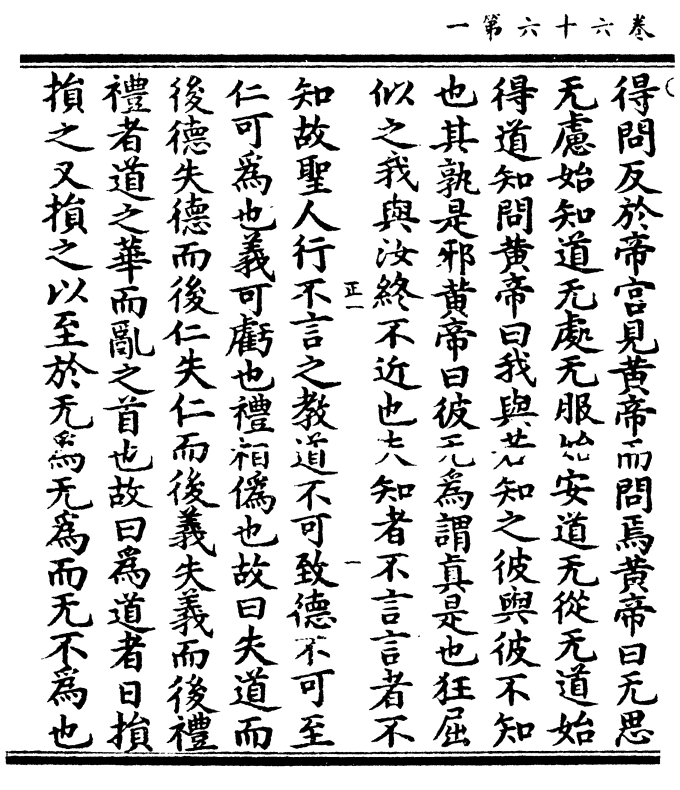 卷六十六第一
得問反於帝宫見黄帝而問焉黄帝曰无思
无慮始知道无處无服始安道无從无道始
得道知問黄帝曰我與若知之彼與彼不知
也其孰是邪黄帝曰彼无爲謂眞是也狂屈
似之我與汝終不近也夫知者不言言者不
正一
一
知故聖人行不言之教道不可致德不可至
仁可爲也義可虧也禮相僞也故曰失道而
後德失德而後仁失仁而後義失義而後禮
禮者道之華而亂之首也故曰爲道者日損
損之又損之以至於无爲无爲而无不爲也